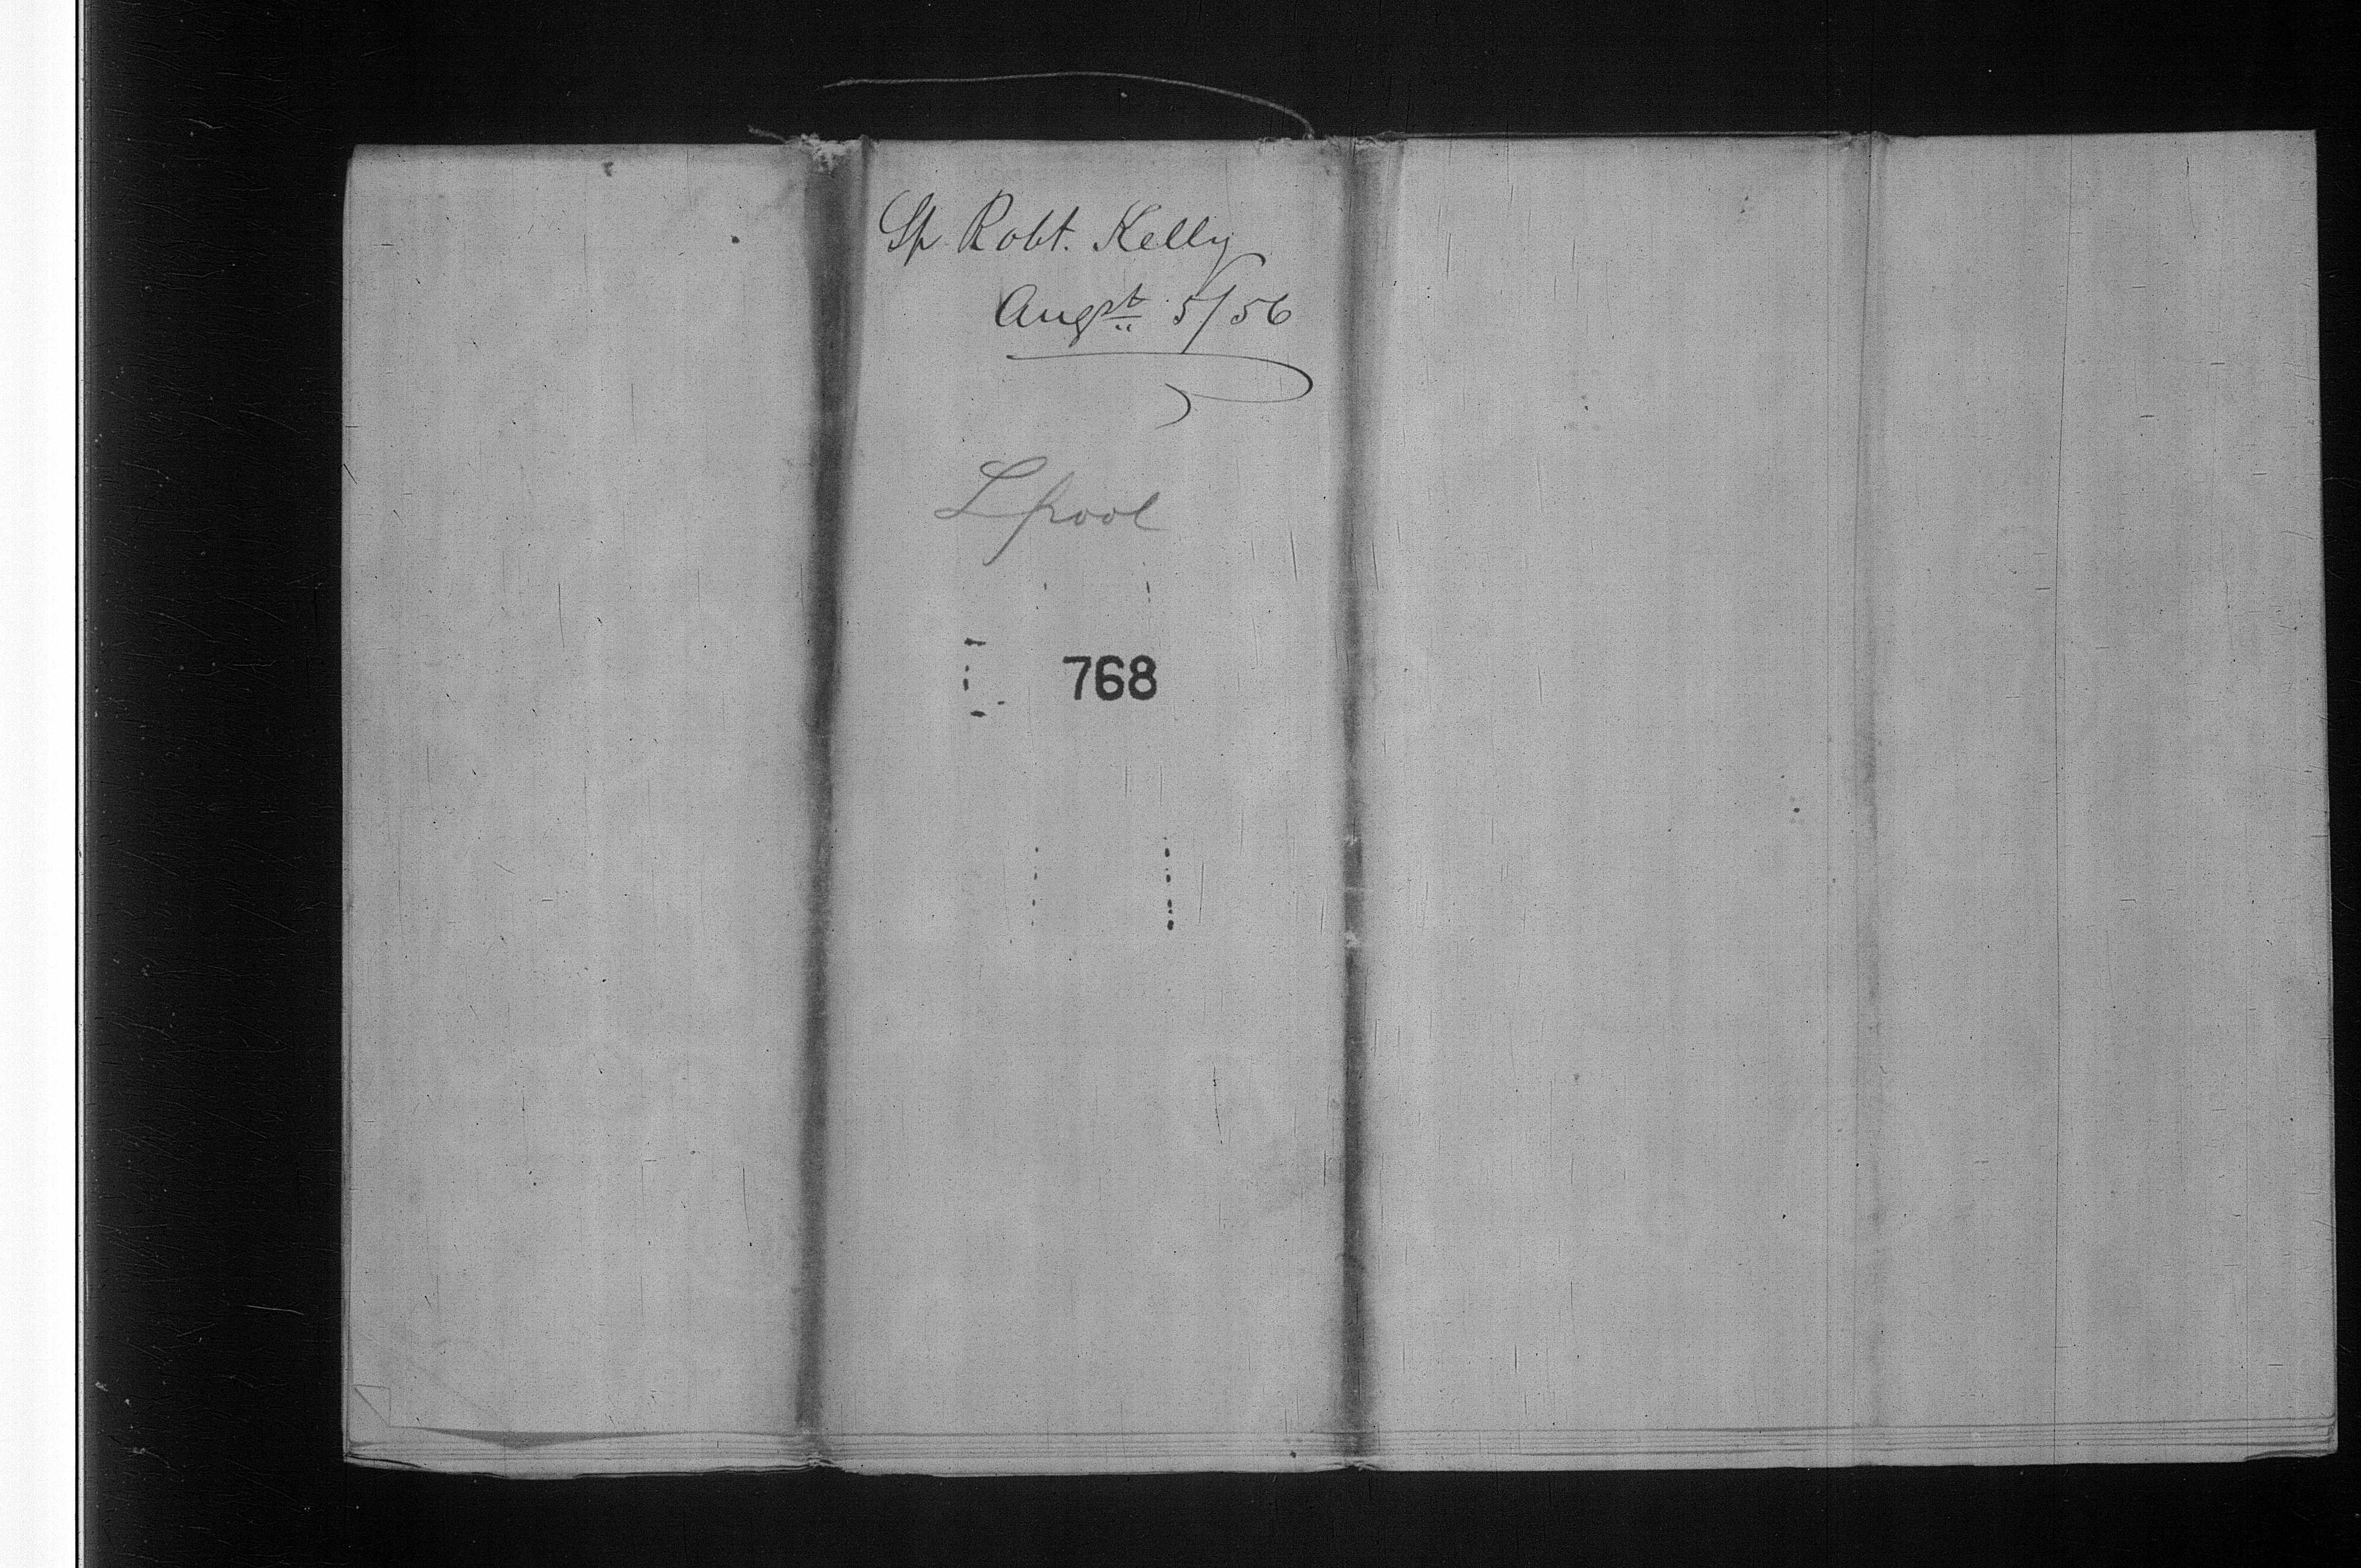 Sp Robt. Kelly
Augst 5/56
Lpool
768